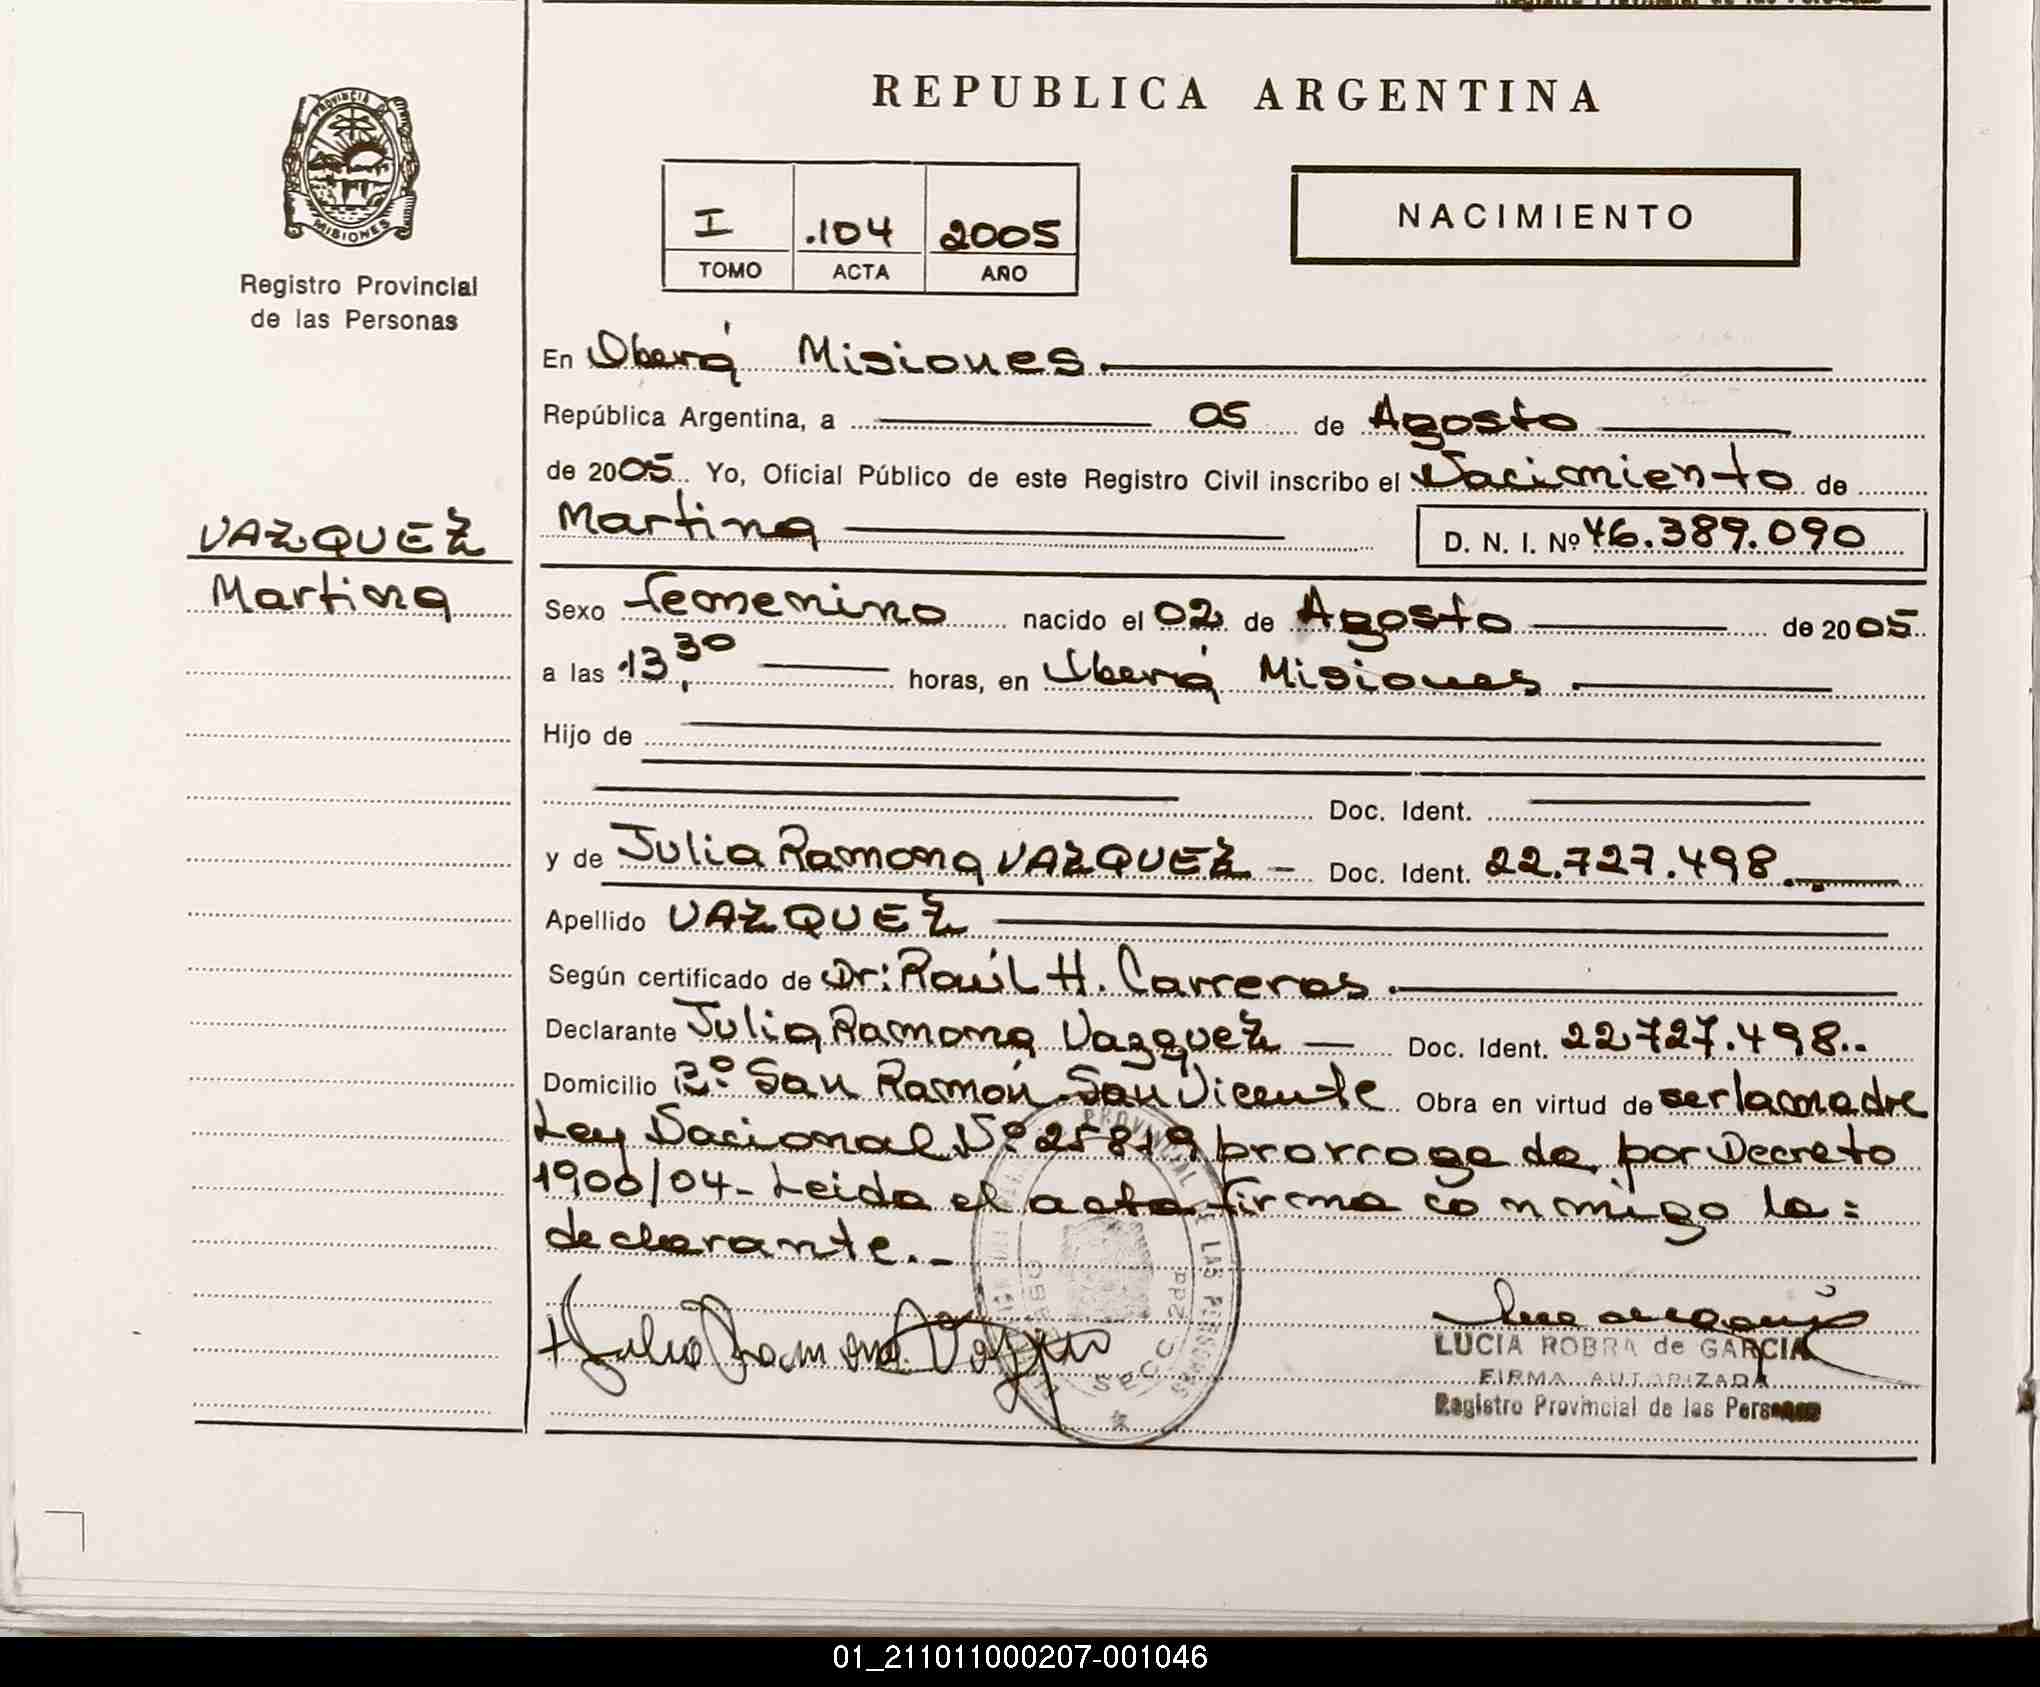 REPUBLICA ARGENTINA
PROVINCIA DE
MISIONES
Registro Provincial
de las Personas
I .104 2005
TOMO ACTA AÑO
NACIMIENTO
En Oberá Misiones.
República Argentina, a 05 de Agosto
de 2005. Yo, Oficial Público de este Registro Civil inscribo el Nacimiento de
Martina D. N. I. Nº 46.389.090
VAZQUEZ
Martina
Sexo femenino nacido el 02 de Agosto de 2005
a las 13,30 horas, en Oberá Misiones.
Hijo de
Doc. Ident.
y de Julia Ramona VAZQUEZ - Doc. Ident. 22.727.498.
Apellido VAZQUEZ
Según certificado de Dr: Raúl H. Carreras.
Declarante Julia Ramona Vazquez — Doc. Ident. 22727.498..
Domicilio Bº San Ramón-San Vicente Obra en virtud de ser la madre
Ley Nacional Nº 25819 prorrogada por Decreto
1900/04- Leida el acta firma conmigo la=
declarante.-
PROVINCIAL DE LAS PERSONAS
Julia Ramona Vazquez
LUCIA ROBRA de GARCIA
FIRMA AUTORIZADA
Registro Provincial de las Personas
01_211011000207-001046